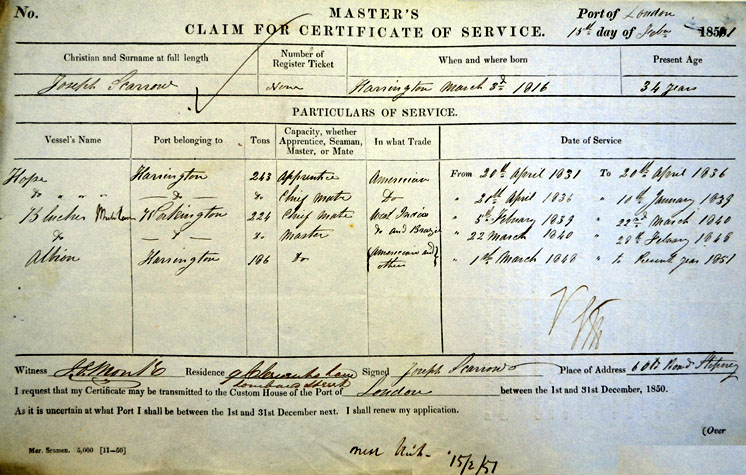 No. MASTER'S Port of London
CLAIM FOR CERTIFICATE OF SERVICE. 15th day of Feby 1851
Christian and Surname at full length Number of Register Ticket When and where born Present Age
Joseph Scarrow None Harrington March 3d 1816 34 years
PARTICULARS OF SERVICE.
Vessel's Name Port belonging to Tons Capacity, whether Apprentice, Seaman, Master, or Mate In what Trade Date of Service
Hope Harrington 243 Apprentice American From 20th April 1831 To 20th April 1836
Do " " " — Do — Do Chief Mate Do " 21st April 1836 " 10th January 1839
Blucher Workington 224 Chief Mate West India " 5th February 1839 " 22nd March 1840
Do — " — Do Master Do and Brazil " 22 March 1840 " 28th February 1848
Albion Harrington 196 Do American and others " 1st March 1848 " to Present year 1851
Witness Residence Lombard Street Signed Joseph Scarrow Place of Address 6 Old Road Stepney
I request that my Certificate may be transmitted to the Custom House of the Port of London between the 1st and 31st December, 1850.
As it is uncertain at what Port I shall be between the 1st and 31st December next. I shall renew my application.
(Over
Mar. Seamen. 5,000 [11—50]
15/2/51